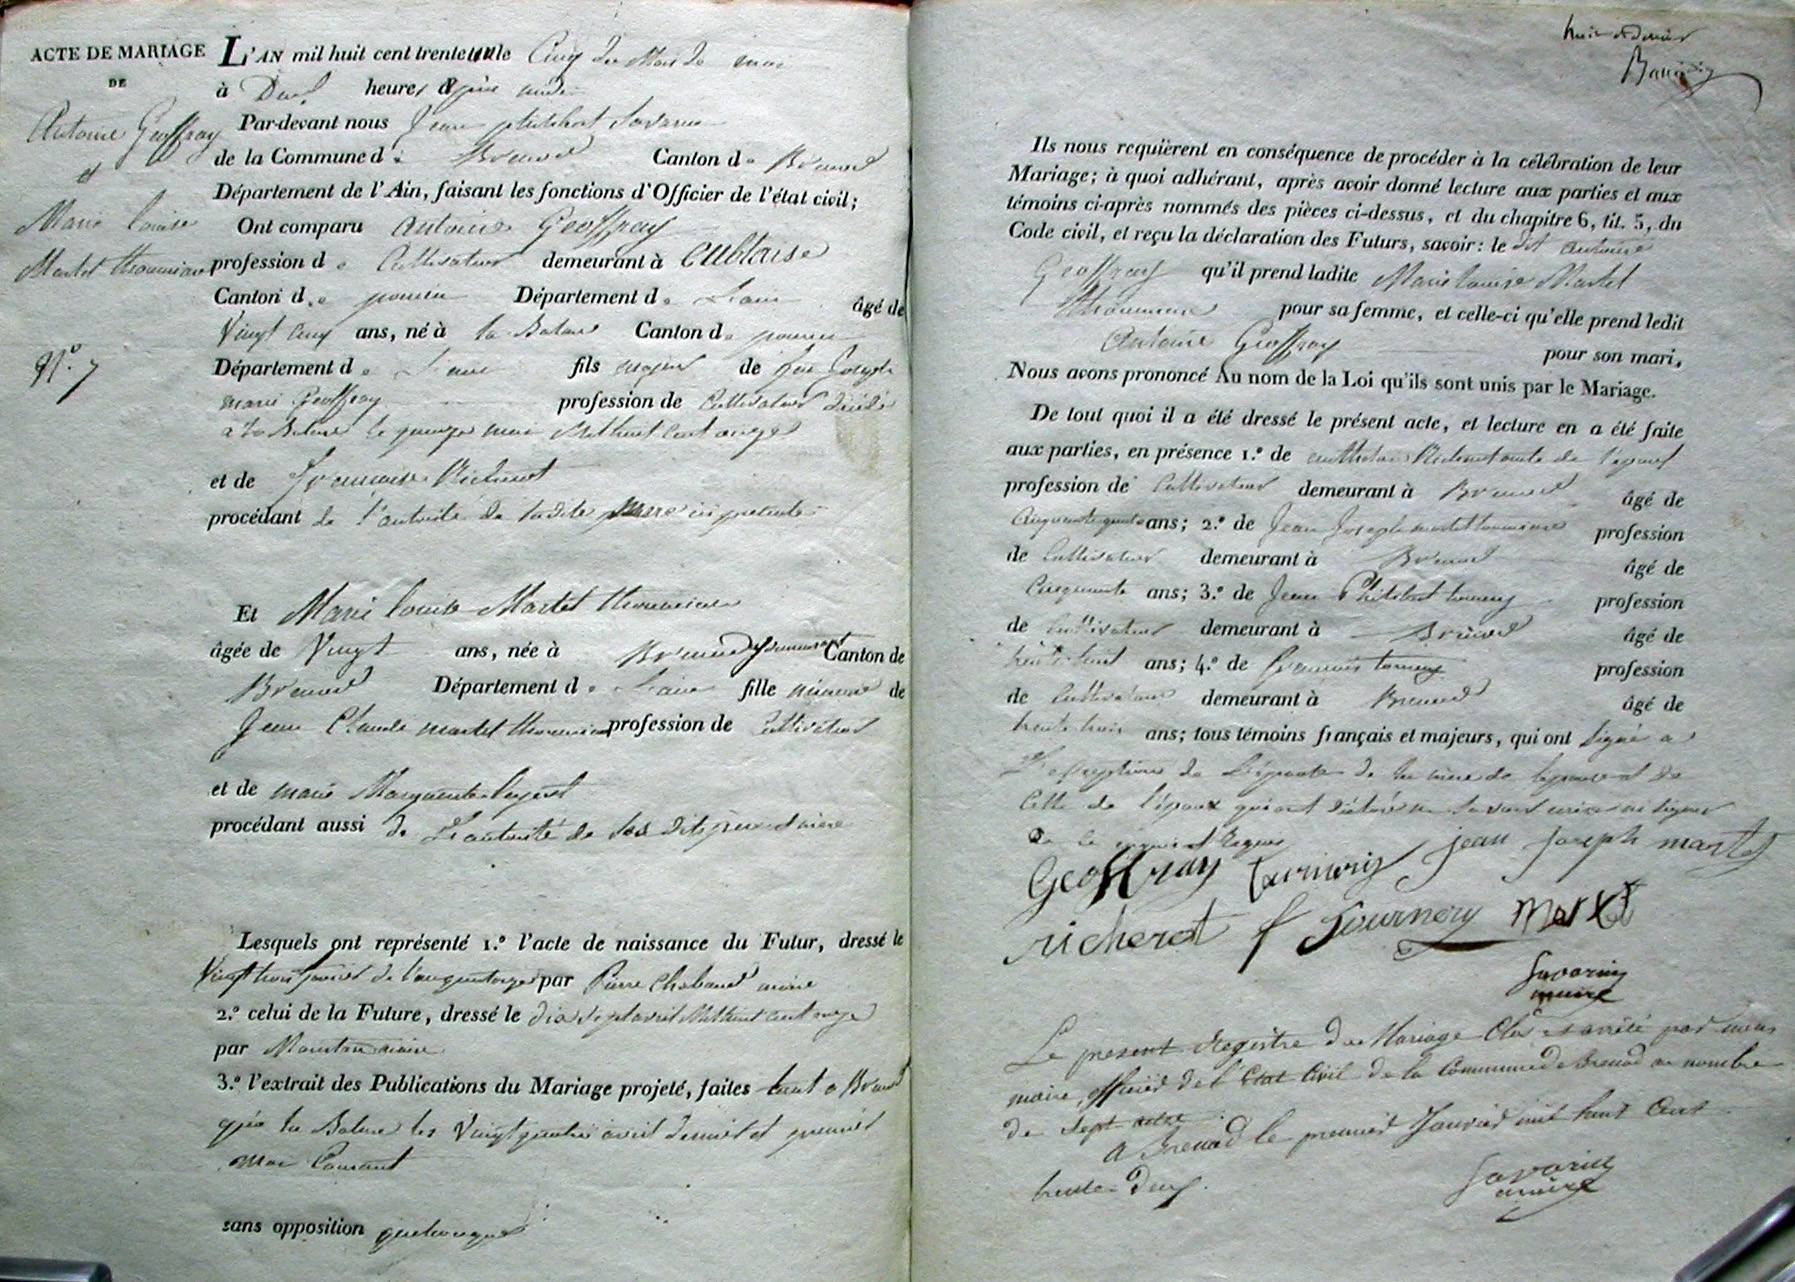 ACTE DE MARIAGE
DE
Antoine Geoffray
et
Marie louise
Martet thoumiau
N.º 7
L'AN mil huit cent trente un le Cinq du Mois de mai
à Deux heures après midi
Par-devant nous Jean philibert Savarin
de la Commune d e Brenod Canton d e Brenod
Département de l'Ain, faisant les fonctions d'Officier de l'état civil;
Ont comparu antoine Geoffray
profession d e Cultivateur demeurant à
Canton d e poncin Département d e L'ain âgé de
Vingt cinq ans, né à la Balme Canton de poncin
Département d e L'ain fils majeur de feu Joseph
marie Geoffray profession de Cultivateur décédé
a la Balme le quinze mai Mil huit cent onze
et de francoise Richerot
procédant de l'autorité de ladite mere ici présente
Et Marie louise Martet
âgée de Vingt ans, née à Brenod y demeurant Canton de
Brenod Département d e L'ain fille mineure de
Jean Claude martet profession de Cultivateur
et de marie Marguerite
procédant aussi de L'autorité de ses dits père et mère
Lesquels ont représenté 1.º l'acte de naissance du Futur, dressé le
Vingt trois de l'an quatorze par Pierre Chabaud maire
2.º celui de la Future, dressé le dix sept avril Mil huit cent onze
par maire
3.º l'extrait des Publications du Mariage projeté, faites tant a Brenod
qu'a la Balme les Vingt quatre avril dernier et premier
mai Courant
sans opposition quelconque
huit et dernier
Ils nous requièrent en conséquence de procéder à la célébration de leur
Mariage; à quoi adhérant, après avoir donné lecture aux parties et aux
témoins ci-après nommés des pièces ci-dessus, et du chapitre 6, tit. 5, du
Code civil, et reçu la déclaration des Futurs, savoir: le dit antoine
Geoffray qu'il prend ladite Marie louise Martet
pour sa femme, et celle-ci qu'elle prend ledit
Antoine Geoffray pour son mari,
Nous avons prononcé Au nom de la Loi qu'ils sont unis par le Mariage.
De tout quoi il a été dressé le présent acte, et lecture en a été faite
aux parties, en présence 1.º de Richerot oncle de l'époux
profession de Cultivateur demeurant à Brenod âgé de
Cinquante quatre ans; 2.º de Jean Joseph martet profession
de Cultivateur demeurant à Brenod âgé de
Cinquante ans; 3.º de Jean Philibert tournery profession
de Cultivateur demeurant à Brenod âgé de
trente huit ans; 4.º de francois tournery profession
de Cultivateur demeurant à Brenod âgé de
trente trois ans; tous témoins français et majeurs, qui ont signé a
L'exception de L'épouse de la mere de lepouse et de
Celle de l'époux qui ont déclaré ne savoir ecrire ni signer
de ce enquis et Requis
Geoffray tournery jean joseph martet
richerot f Tournery Martet
Savarin
maire
Le present Registre de Mariage Clos et arrêté par nous
maire, officier de l'Etat Civil de la Commune de Brenod au nombre
de sept actes
A Brenod le premier Janvier mil huit Cent
trente Deux.
Savarin
maire